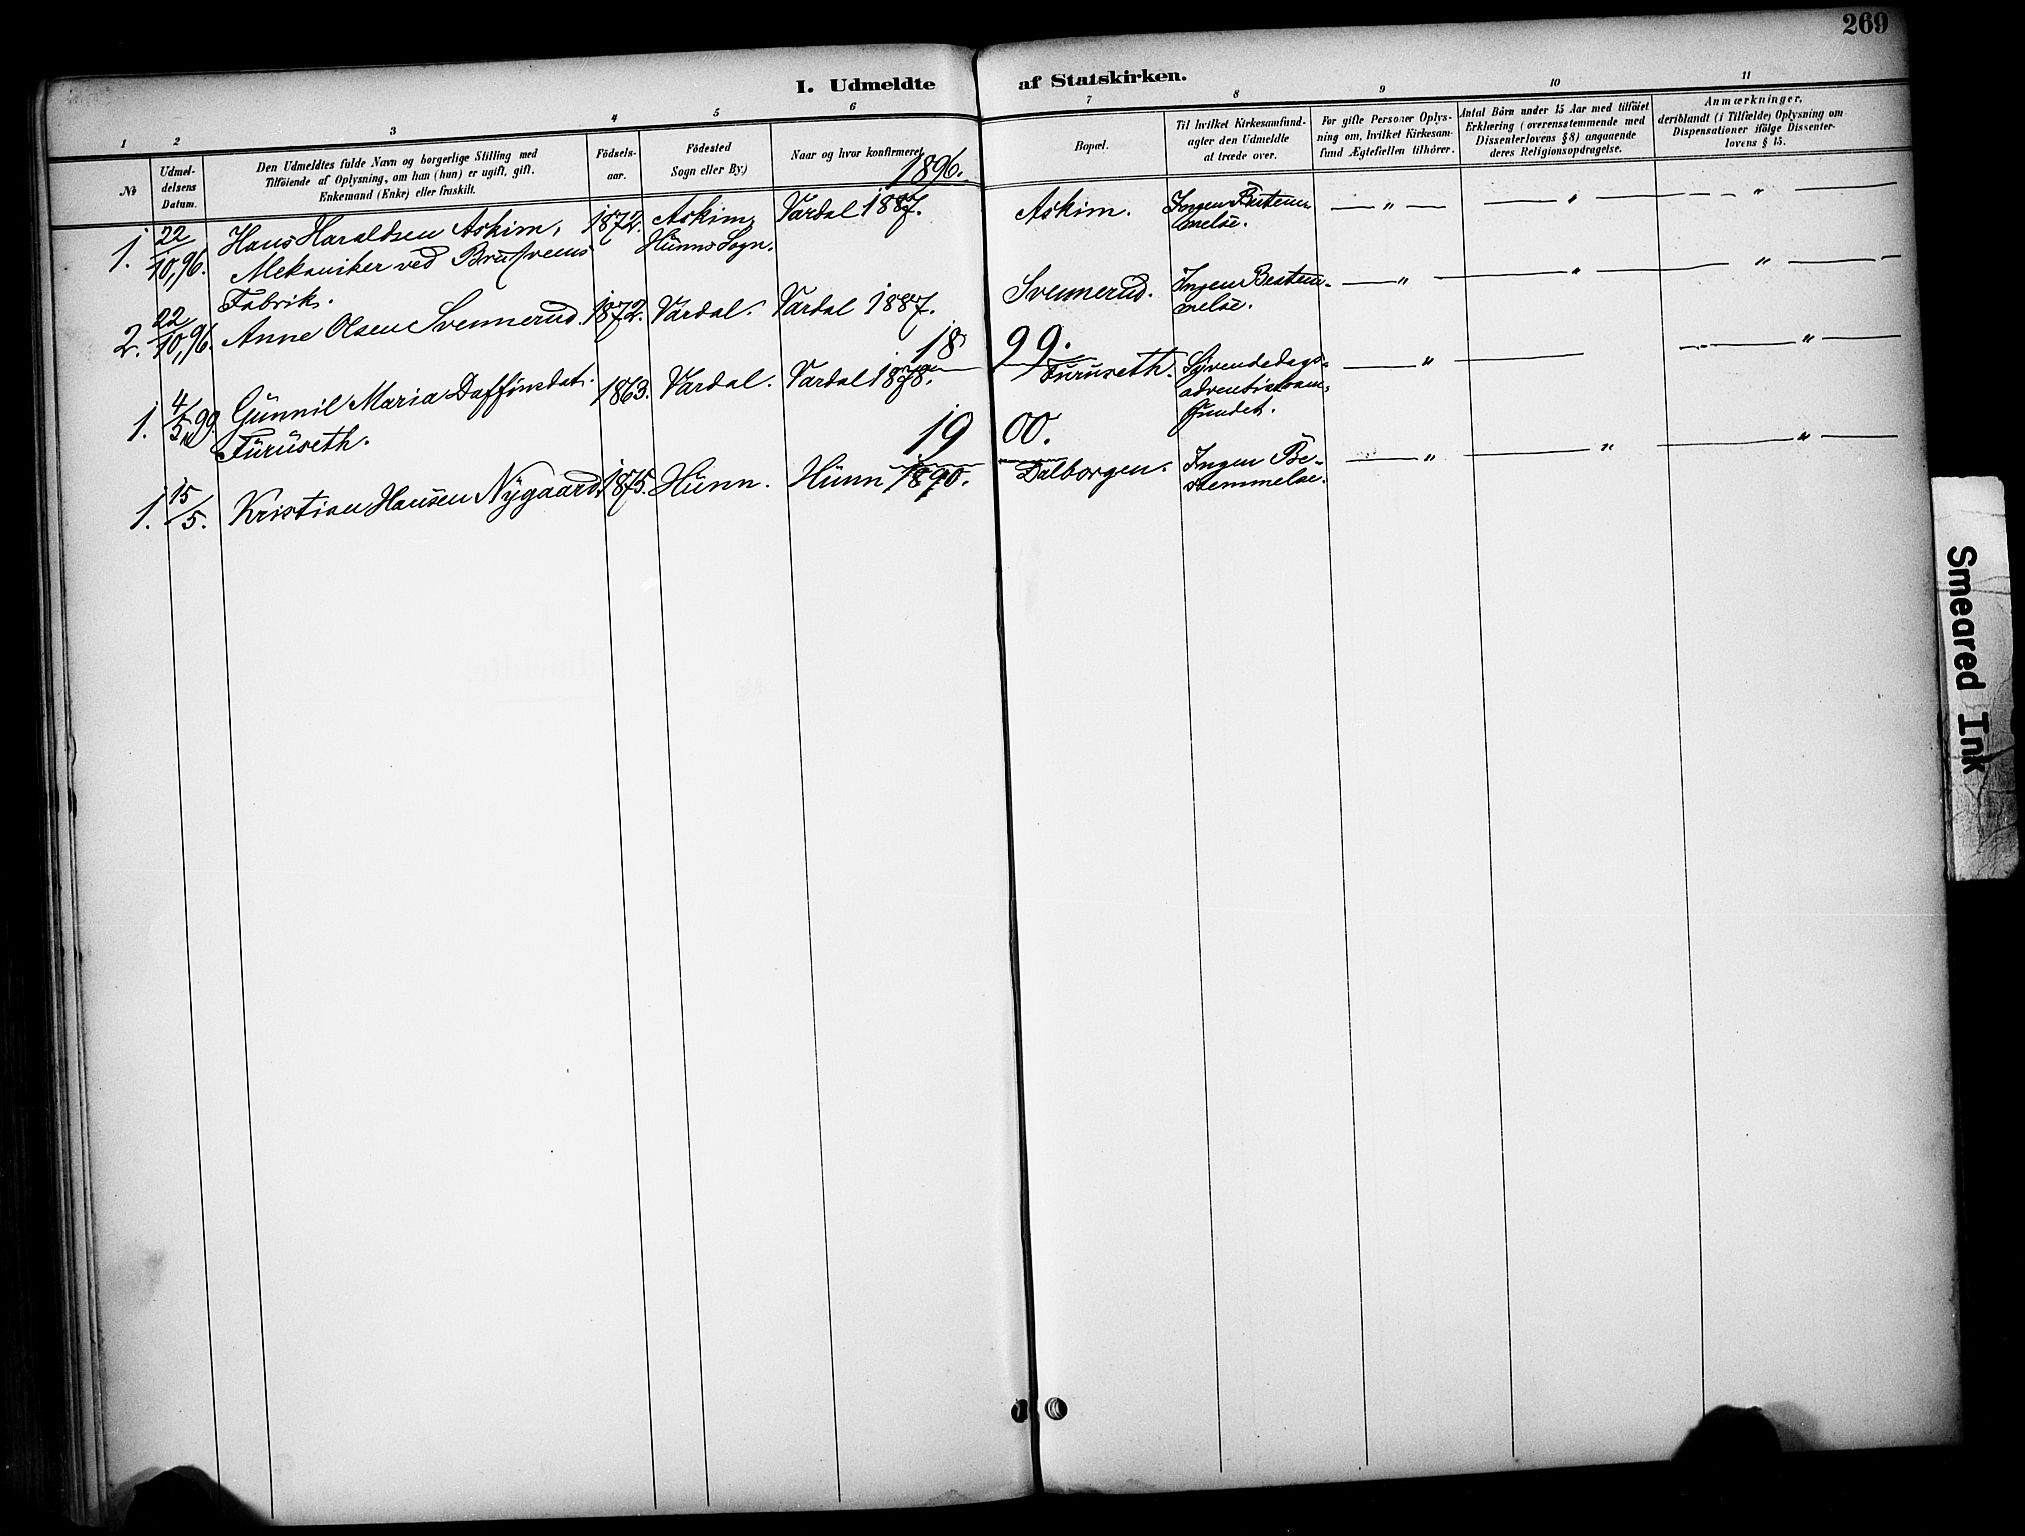 269
I. Udmeldte af Statskirken.
1 2 3 4 5 6 7 8 9 10 11
№
Udmel-
delsens
Datum.
Den Udmeldtes fulde Navn og borgerlige Stilling med
Tilføiende af Oplysning, om han (hun) er ugift, gift,
Enkemand (Enke) eller fraskilt.
Fødsels-
aar.
Fødested
Sogn eller By.)
Naar og hvor konfirmeret.
Bopæl.
Til hvilket Kirkesamfund-
agter den Udmeldte
at træde over.
For gifte Personer Oplys-
ning om, hvilket Kirkesam-
fund Ægtefællen tilhører.
Antal Børn under 15 Aar med tilføiet
Erklæring (overensstemmende med
Dissenterlovens § 8) angaaende
deres Religionsopdragelse.
Anmærkninger,
deriblandt (i Tilfælde) Oplysning om
Dispensationer ifølge Dissenter-
lovens § 15.
1896.
1. 22/10,96. Hans Haraldsen Askim, 1872. Askim, Vardal 1887. Askim. Ingen Bestem- — " — — " — — " —
Mekaniker ved Hunns Sogn. melse.
Fabrik.
2. 22/10,96. Anne Olsen Svennerud. 1872. Vardal. Vardal 1887. Svennerud. Ingen Bestem- — " — — " — — " —
melse.
1899.
1. 4/5 99. Gunnil Maria 1863. Vardal. Vardal 1878. Furuseth. Syvendedags- — " — — " —
Furuseth. adventistsam-
fundet.
1900.
1. 15/5. Kristian Hansen Nygaard. 1875. Hunn. Hunn 1890. Dalborgen. Ingen Be- — " — — " — — " —
stemmelse.
Smeared Ink